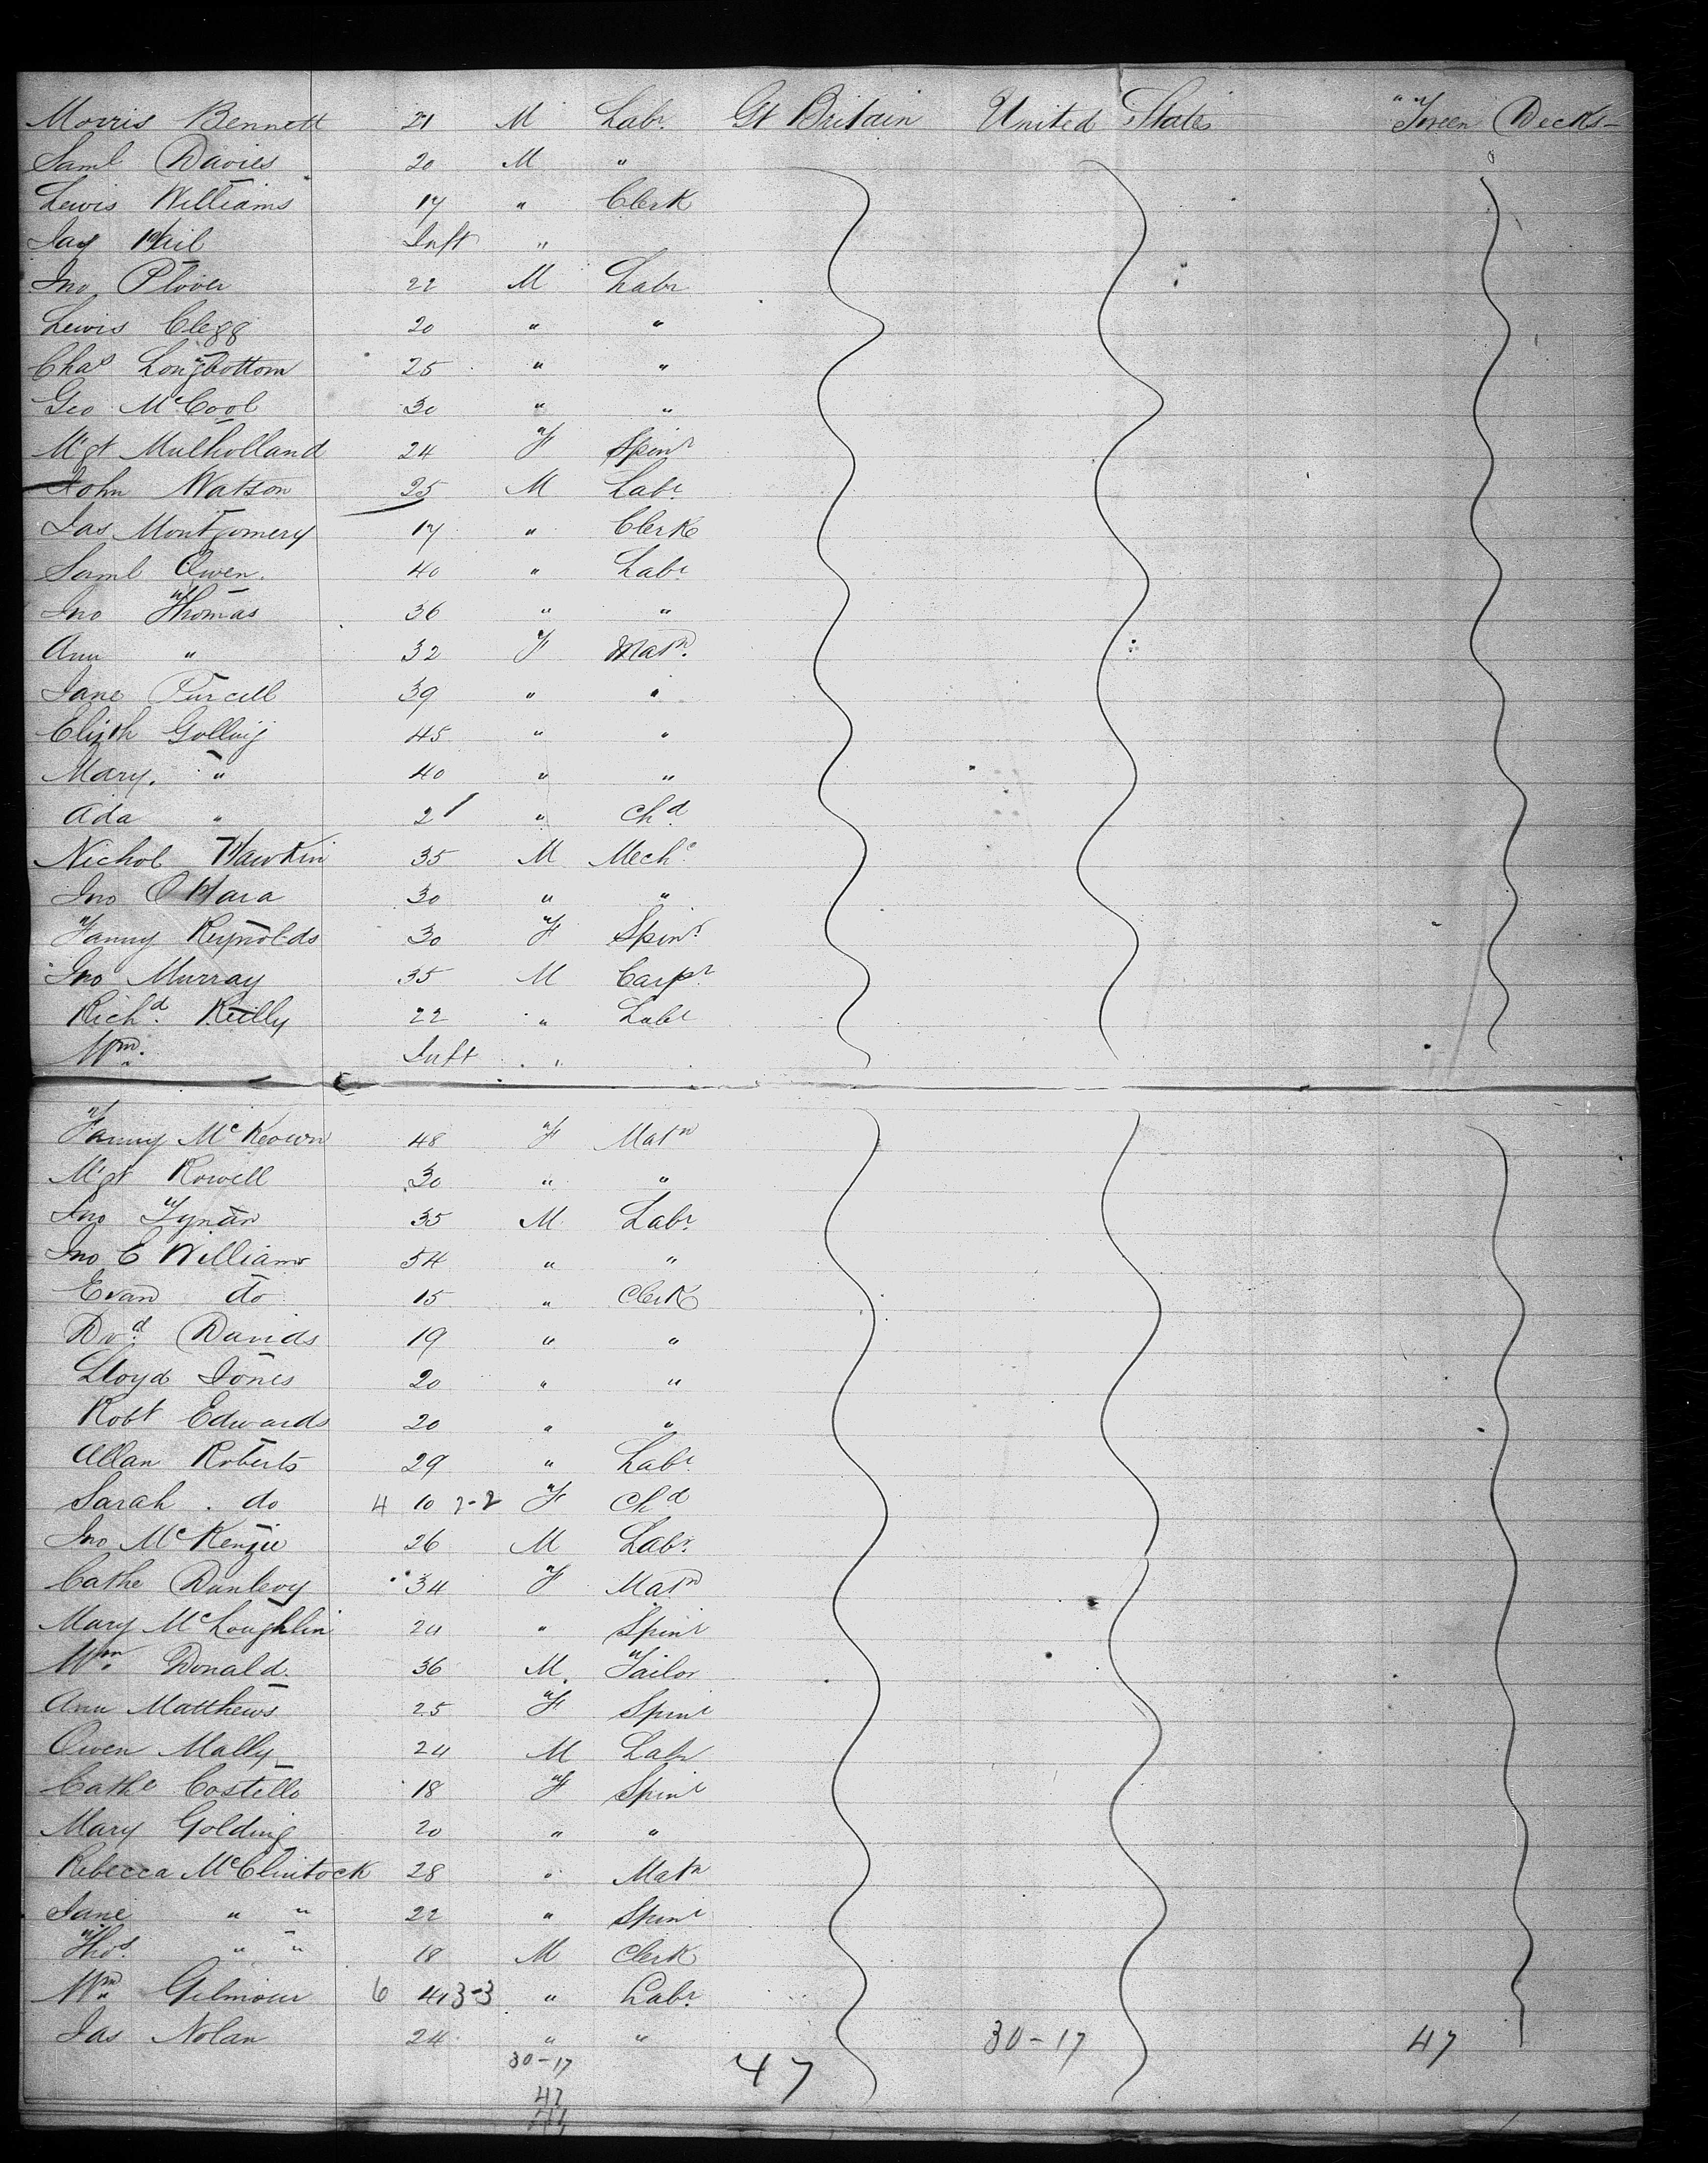 Morris Bennett 21 M Labr. Gt Britain United States Tween Decks
Saml Davies 20 M "
Lewis Williams 17 " Clerk
Jas Hail Inft "
Jno Plover 22 M Labr
Lewis Clegg 20 " "
Chas Longbottom 25 " "
Geo McCool 30 " "
Mgt Mulholland 24 F Spinr
John Watson 25 M Labr.
Jas Montgomery 17 " Clerk
Saml Owen. 40 " Labr
Jno Thomas 36 " "
Ann " 32 F Matn.
Jane Purcell 39 " "
Elizth Golling 45 " "
Mary. " 40 " "
Ada " 21 " Chd
Nichol Hawkin 35 M Mechc
Jno O'Hara 30 " "
Fanny Reynolds 30 F Spinr
Jno Murray 35 M Carpr.
Richd. Reilly 22 " Labr
Wm. " Inft "
Fanny McKeown 48 F Matn
Mgt Rowell 30 " "
Jno Tynan 35 M Labr.
Jno C Williams 54 " "
Evan do 15 " Clerk
Dvd. Davids 19 " "
Lloyd Jones 20 " "
Robt Edwards 20 " "
Allan Roberts 29 " Labr.
Sarah . do 4 10 2-2 F Chd
Jno McKenzie 26 M Labr.
Cathe Dunlevy 34 F Matn
Mary McLoughlin 24 " Spinr
Wm. Donald 36 M. Tailor
Ann Matthews 25 F Spinr
Owen Mally 24 M Labr
Cathe Costello 18 F Spinr
Mary Golding 20 " "
Rebecca McClintock 28 " Matn
Jane " " 22 " Spinr
Thos. " " 18 M Clerk
Wm. Gilmour 6 41 3-3 " Labr.
Jas Nolan 24 " " 30-17 47
30-17 47
47